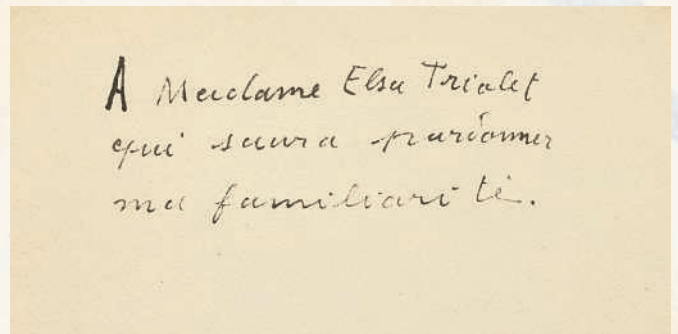 A Madame Elsa Triolet
qui saura pardonner
ma familiarité.